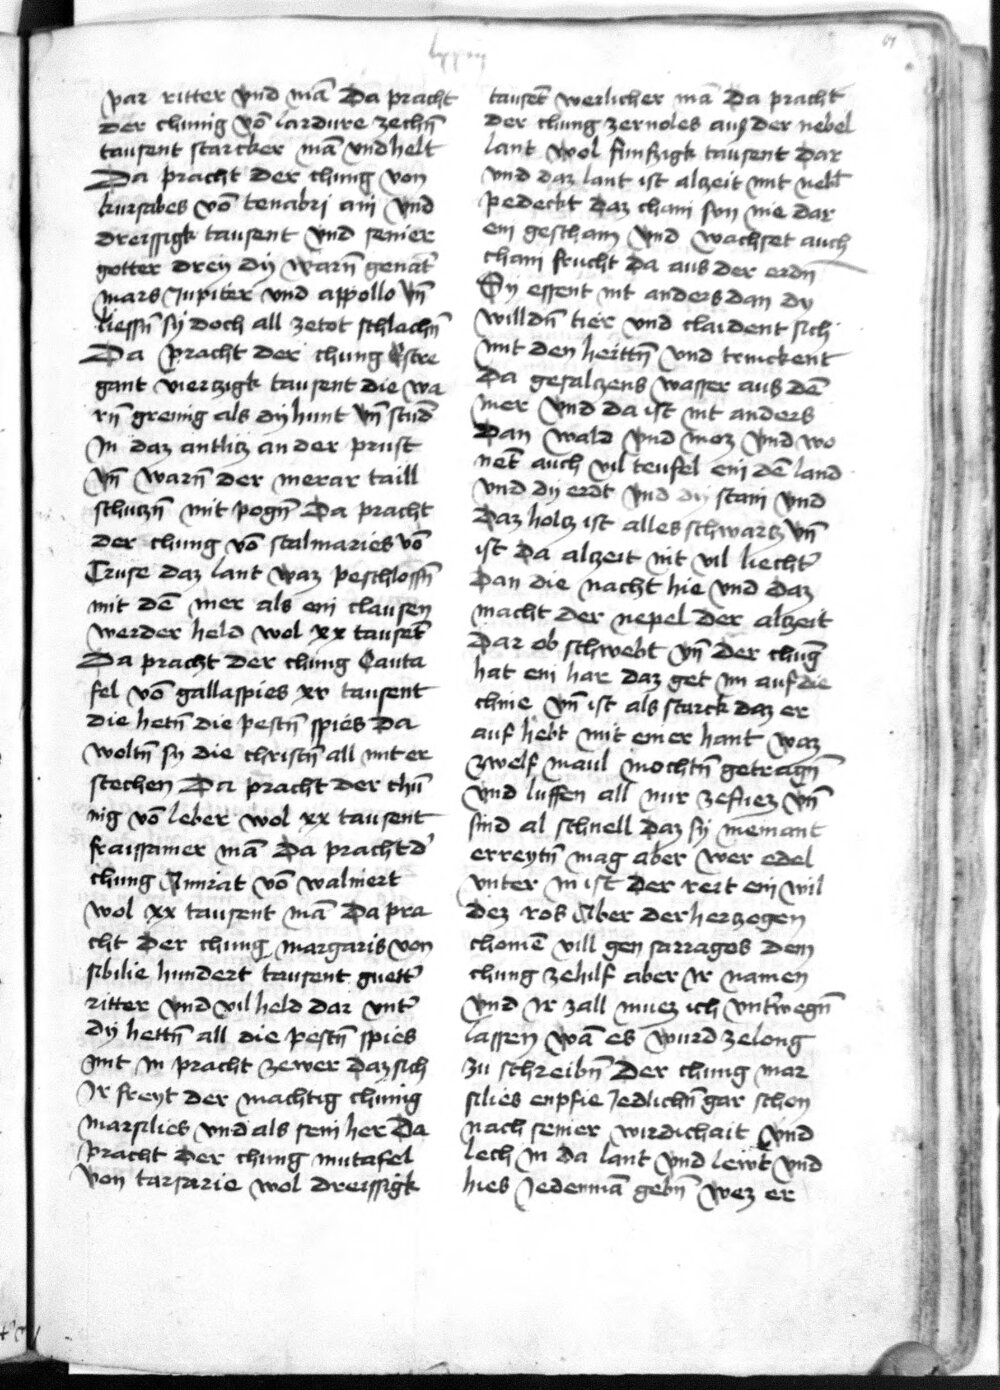 par ritter vnd mā Da pracht
der chunig vō lardure zechn̄
tausent starcker mā vnd helt
Da pracht der chung von
kursabes vō tenabri ain vnd
dreissigk tausent vnd seiner
gotter dreÿ dÿ warn̄ genāt
mars Jupiter vnd appollo vn̄
liessn̄ sÿ doch all zetot schlachn̄
Da pracht der chung Estre
gant viertzigk tausent die wa
rn̄ greinig als dÿ hunt vn̄ stūd
In daz antlitz an der prust
vn̄ warn̄ der merar taill
schutzn̄ mit pogn̄ Da pracht
der chung vō stalmaries vō
Cruse daz lant waz peschlossn̄
mit dē mer als ein clausen
werder held wol xx tausēt
Da pracht der chung Cauta
fel vō gallaspies xv tausent
die hetn̄ die pestn̄ spies Da
woltn̄ sÿ die christn̄ all mit er
stechen Da pracht der chū
nig vō leber wol xx tausent
fraissamer mā Da pracht d'
chung Amrat vō walmert
wol xx tausent mā Da pra
cht der chung margaris von
sibilie hundert tausent guett'
ritter vnd vil held dar vnt'
dÿ hettn̄ all die pestn̄ spies
mit in pracht zewer daz sich
Ir freyt der machtig chunig
marsilies vnd als sein her Da
pracht der chung mutafel
von tarsarie wol dreissigk
tausēt werlicher mā Da pracht
der chung zernoles aus der nebel
lant wol funftzigk tausent dar
vnd daz lant ist alzeit mit nebl
pedeckt daz chain sun nie dar
ein geschain vnd wachset auch
chain frucht da aus der erdn̄
Sÿ essent nit anders dan dy
willdn̄ tier vnd claident sich
mit den heittn̄ vnd trinckent
Da gesaltzens wasser aus dē
mer vnd da ist nit anders
Dan wald vnd moz vnd wo
nēt auch vil teufel ein dē land
vnd dÿ erdt vnd dÿ stain vnd
Daz holtz ist alles schwartz vn̄
ist da alzeit nit vil liecht'
Dan die nacht hie vnd daz
macht der nepel der alzeit
Dar ob schwebt vn̄ der chuḡ
hat ein har daz get im auf die
chnie vn̄ ist als starck daz er
auf hebt mit einer hant waz
zwelf maul mochtn̄ getragn̄
vnd luffen all nur zefuez vn̄
sind al schnell daz sÿ niemant
erreytn̄ mag aber wer edel
vnter in ist der reit ein wil
dez ros Aber der hertzogen
chomē vill gen sarragos dem
chung zehilf aber ir namen
vnd Ir zall muez ich vnt'wegn̄
lassen wā es wurd zelong
zu schreibn̄ Der chunig mar
silies enpfie Jedlichn̄ gar schon
nach seiner wirdichait vnd
lech in da lant vnd lewt vnd
hies Jedenmā gebn̄ wez er